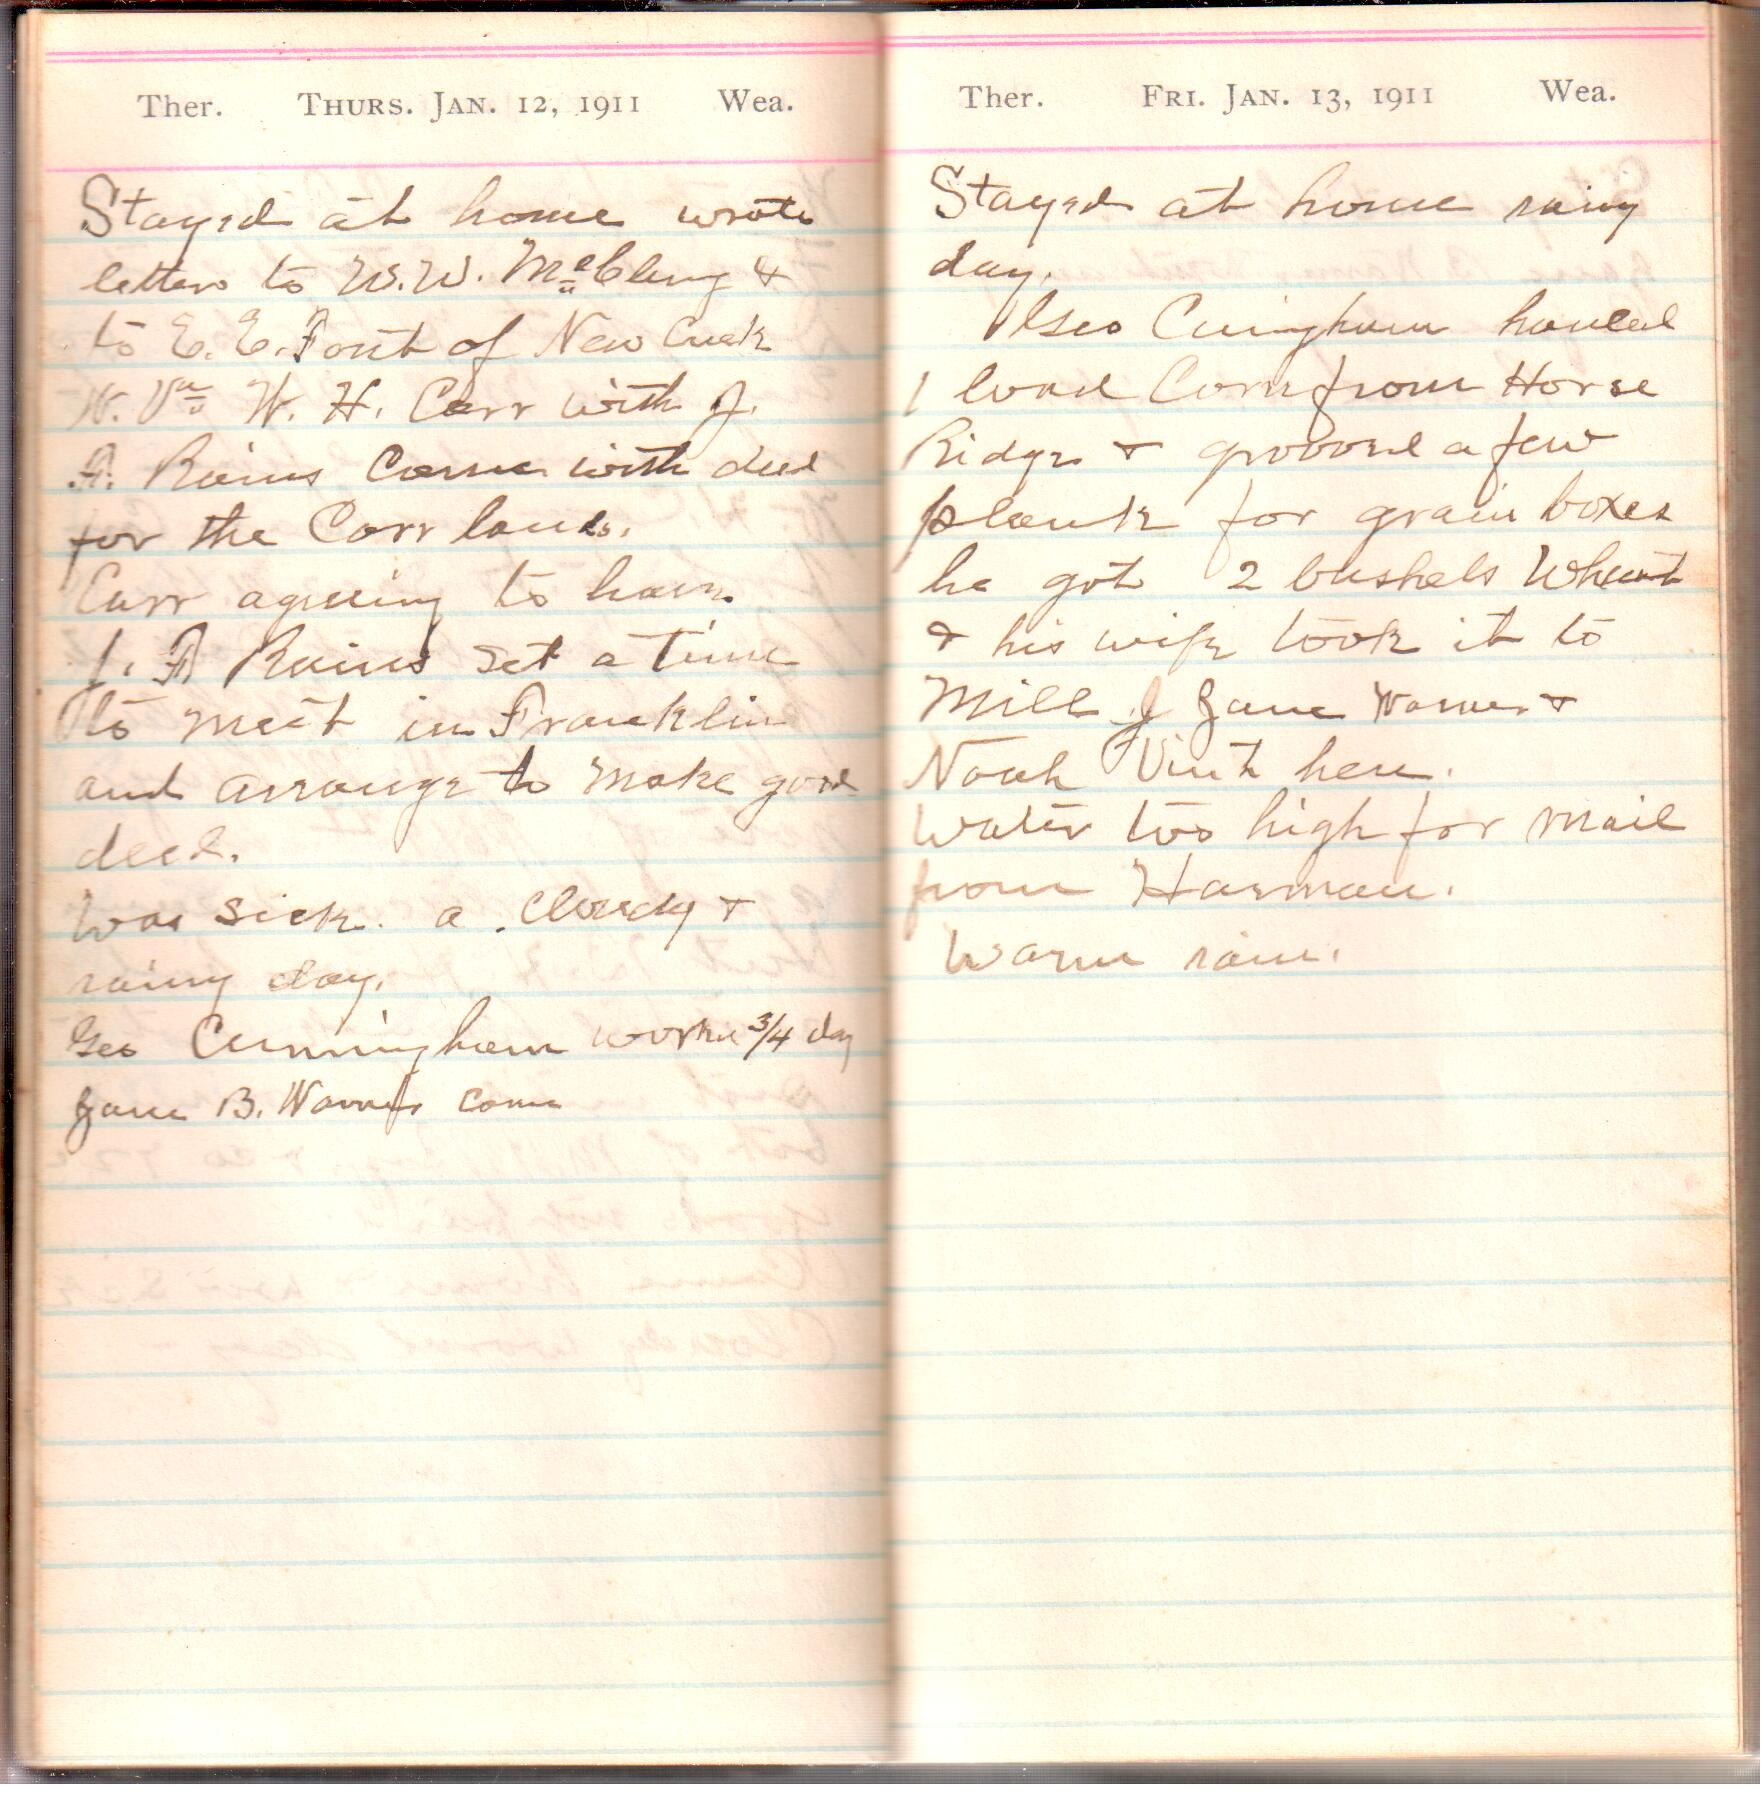 Ther. THURS. JAN. 12, 1911 Wea.
Stayed at home wrote
letters to W.W. McClung &
to E. E. Font of New Creek
W. Va W. H. Carr with J.
A. Rains Came with deed
for the Carr lands.
Carr agreeing to have
J. A Rains set a time
to meet in Franklin
and arrange to make good
deed.
Was sick. a . Cloudy &
rainy day.
Geo Cunningham worked 3/4 day
Jane B. Warner came
Ther. FRI. JAN. 13, 1911 Wea.
Stayed at home rainy
day.
Geo Cuningham hauled
1 load Corn from Horse
Ridge & grooved a few
plank for grain boxes
he got 2 bushels Wheat
& his wife took it to
Mill Jane Warner &
Noah Vint here.
Water too high for mail
from Harman.
Warm rain.